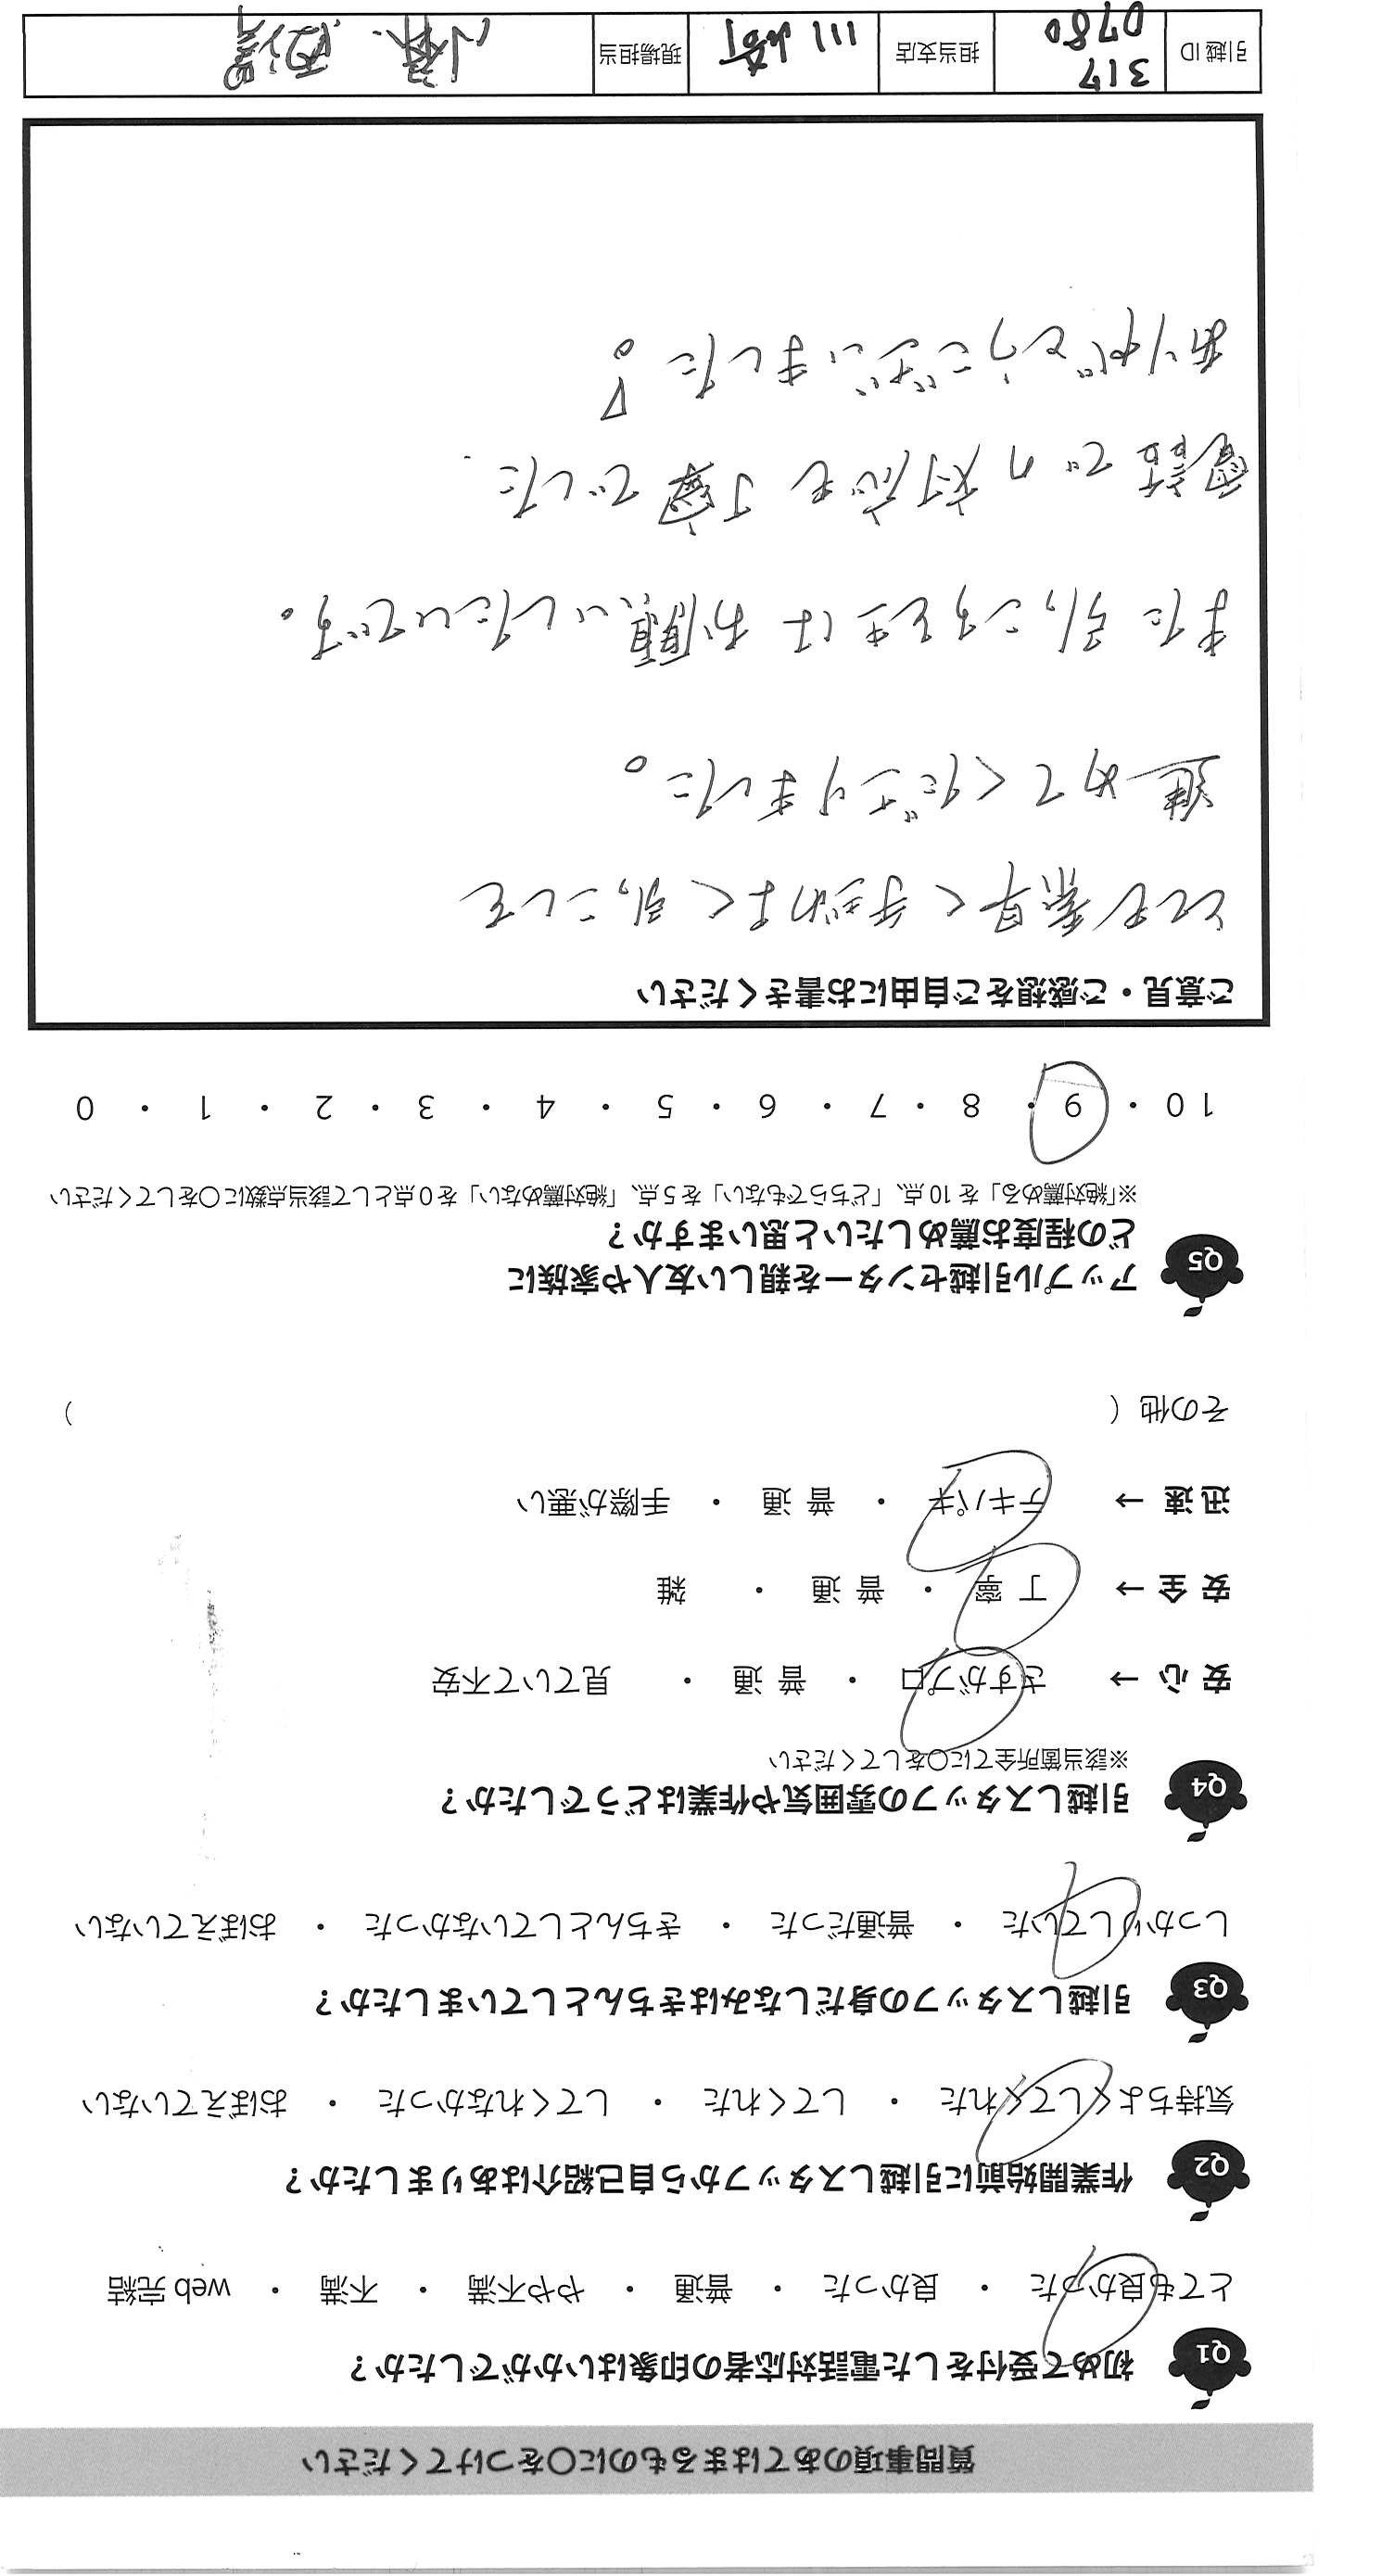 質問事項のあてはまるものに○をつけてください
Q1 初めて受付をした電話対応者の印象はいかがでしたか？
とても良かった ・ 良かった ・ 普通 ・ やや不満 ・ 不満 ・ web 完結
Q2 作業開始前に引越しスタッフから自己紹介はありましたか？
気持ちよくしてくれた ・ してくれた ・ してくれなかった ・ おぼえていない
Q3 引越しスタッフの身だしなみはきちんとしていましたか？
しっかりしていた ・ 普通だった ・ きちんとしていなかった ・ おぼえていない
Q4 引越しスタッフの雰囲気や作業はどうでしたか？
※該当箇所全てに○をしてください
安心 → さすがプロ ・ 普通 ・ 見ていて不安
安全 → 丁寧 ・ 普通 ・ 雑
迅速 → テキパキ ・ 普通 ・ 手際が悪い
その他（ ）
Q5 アップル引越センターを親しい友人や家族に
どの程度お薦めしたいと思いますか？
※「絶対薦める」を10点、「どちらでもない」を5点、「絶対薦めない」を0点として該当点数に○をしてください
10 ・ 9 ・ 8 ・ 7 ・ 6 ・ 5 ・ 4 ・ 3 ・ 2 ・ 1 ・ 0
ご意見・ご感想をご自由にお書きください
とても素早く手ぎわよく引っこしを
進めてくださりました。
また引っこす時はお願いしたいです。
電話での対応も丁寧でした
ありがとうございました。
引越ID 317 0780 担当支店 川崎 現場担当